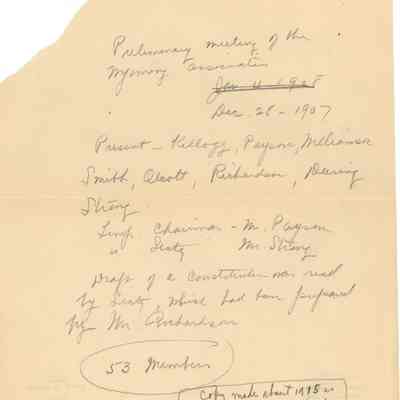 Preliminary meeting of the
Wyoming Associates
Jan 4 1908
Dec. 28 - 1907
Present - Kellogg, Payson, Williamson
Smith, Alcott, Richardson, Deering
Strong
Temp Chairman - Mr. Payson
" Secty Mr. Strong
Draft of a constitution was read
by Secty, which had been prepared
by Mr. Richardson
53 Members
Copy made about 1915